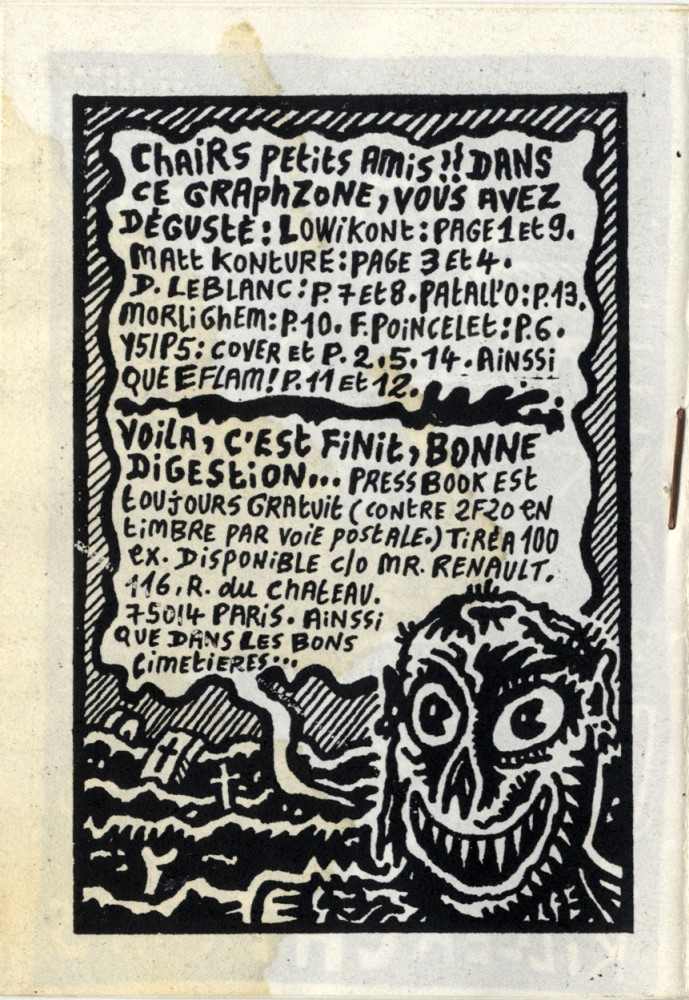 CHAIRS PETITS AMIS!! DANS
CE GRAPHZONE, VOUS AVEZ
DÉGUSTÉ : LOWIKONT : PAGE 1 et 9.
MATT KONTURE : PAGE 3 Et 4.
D. LEBLANC : P. 7 Et 8. PATALL'O : P.13.
MORLIGHEM : P.10. F. POINCELET : P.6.
Y5/P5 : COVER Et P. 2.5.14. AINSSI
QUE EFLAM! P.11 Et 12.
VOILA, C'EST FINIT, BONNE
DIGESTION... PRESS BOOK EST
TOUJOURS GRATUIT (CONTRE 2F20 EN
TIMBRE PAR VOIE POSTALE.) TIRÉ A 100
EX. DISPONIBLE C/O MR. RENAULT.
116, R. du CHATEAU.
75014 PARIS. AINSSI
QUE DANS LES BONS
CIMETIERES...